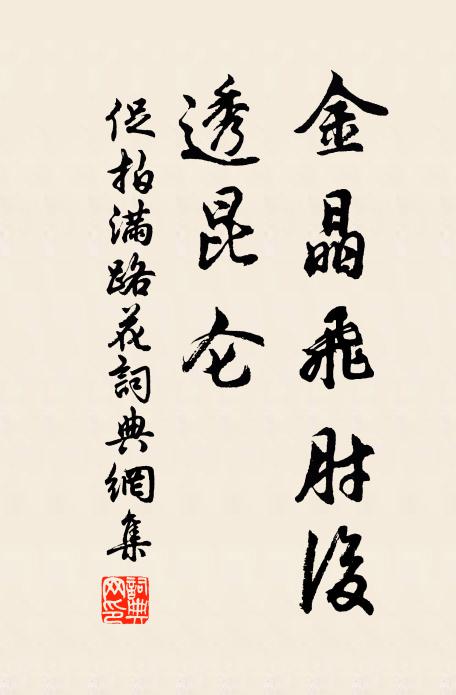 金晶飛肘後
透昆仑
促拍滿路花詞典網集
詞典网印